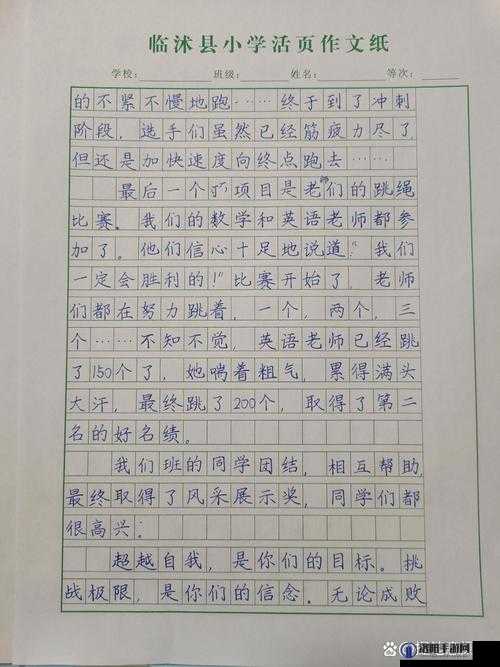 临沭县小学活页作文纸
学校： 班级： 姓名： 等次：
的不紧不慢地跑……终于到了冲刺
阶段，选手们虽然已经筋疲力尽了
但还是加快速度向终点跑去……
最后一个项目是老师们的跳绳
比赛。我们的数学和英语老师都参
加了。他们信心十足地说道：“我们
一定会胜利的！”比赛开始了，老师
们都在努力跳着，一个，两个，三
个……不知不觉，英语老师已经跳
了150个了，她喘着粗气，累得满头
大汗，最终跳了200个，取得了第二
名的好名绩。
我们班的同学团结，相互帮助，
最终取得了风采展示奖，同学们都
很高兴：
超越自我，是你们的目标。挑
战极限，是你们的信念。无论成败
洛阳手游网